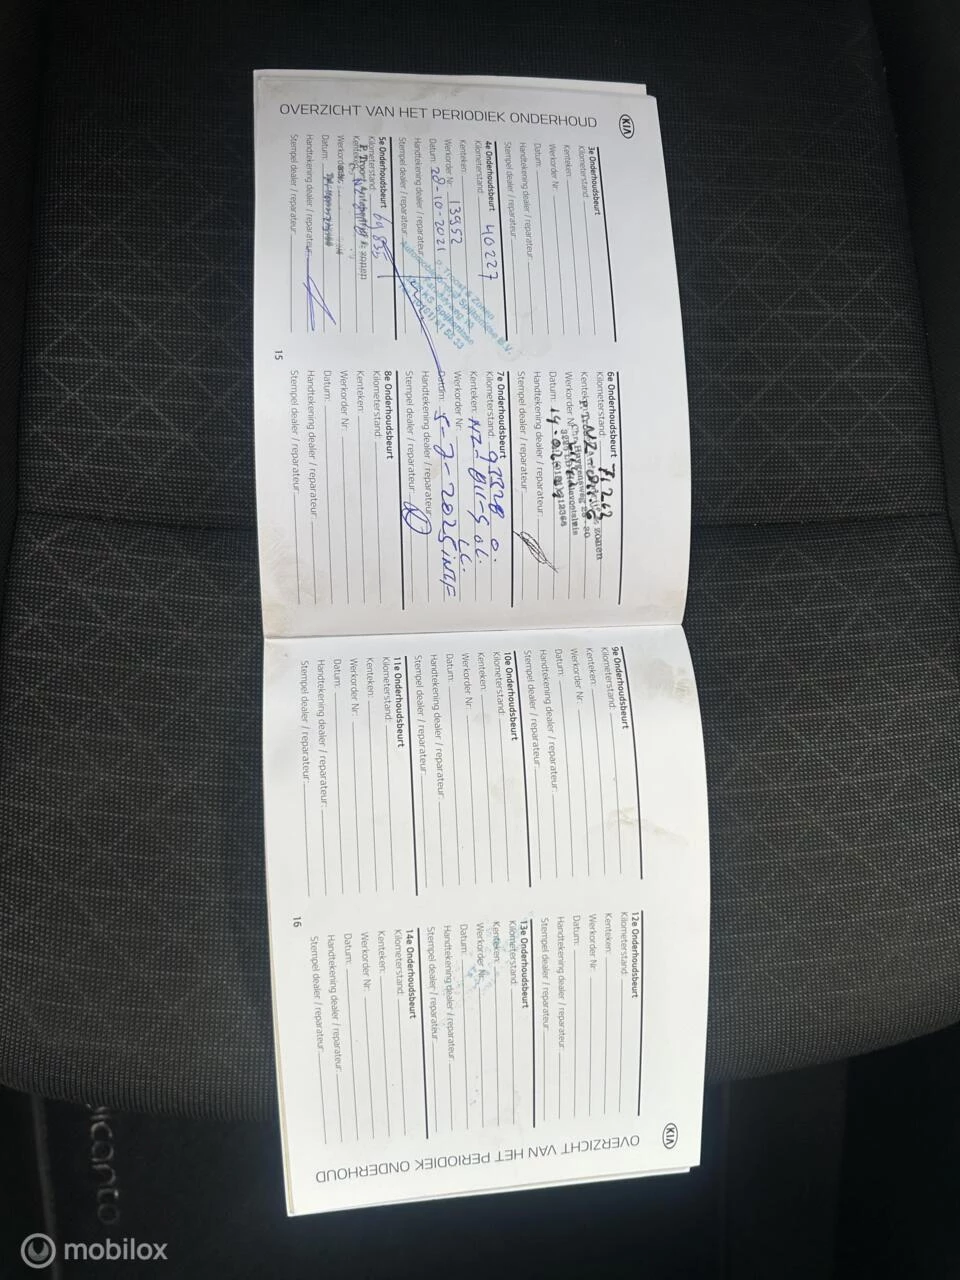 KIA
OVERZICHT VAN HET PERIODIEK ONDERHOUD
3e Onderhoudsbeurt
Kilometerstand:
Kenteken:
Werkorder Nr:
Datum:
Handtekening dealer / reparateur:
Stempel dealer / reparateur:
4e Onderhoudsbeurt
Kilometerstand: 40227
Kenteken:
Werkorder Nr: 13952
Datum: 28-10-2021
Handtekening dealer / reparateur:
Stempel dealer / reparateur:
P. Troost & Zonen
Automobielbedrijf Spijkenisse B.V.
5e Onderhoudsbeurt
Kilometerstand: 69835
Kenteken:
Werkorder
Datum:
Handtekening dealer / reparateur:
Stempel dealer / reparateur:
15
6e Onderhoudsbeurt
Kilometerstand: 71262
Kenteken:
Werkorder Nr:
Datum: 14-02
Handtekening dealer / reparateur:
Stempel dealer / reparateur:
7e Onderhoudsbeurt
Kilometerstand: 93328
Kenteken: NZ-811-G
Werkorder Nr:
Datum: 5-7-2025
Handtekening dealer / reparateur:
Stempel dealer / reparateur:
8e Onderhoudsbeurt
Kilometerstand:
Kenteken:
Werkorder Nr:
Datum:
Handtekening dealer / reparateur:
Stempel dealer / reparateur:
9e Onderhoudsbeurt
Kilometerstand:
Kenteken:
Werkorder Nr:
Datum:
Handtekening dealer / reparateur:
Stempel dealer / reparateur:
10e Onderhoudsbeurt
Kilometerstand:
Kenteken:
Werkorder Nr:
Datum:
Handtekening dealer / reparateur:
Stempel dealer / reparateur:
11e Onderhoudsbeurt
Kilometerstand:
Kenteken:
Werkorder Nr:
Datum:
Handtekening dealer / reparateur:
Stempel dealer / reparateur:
16
12e Onderhoudsbeurt
Kilometerstand:
Kenteken:
Werkorder Nr:
Datum:
Handtekening dealer / reparateur:
Stempel dealer / reparateur:
13e Onderhoudsbeurt
Kilometerstand:
Kenteken:
Werkorder Nr:
Datum:
Handtekening dealer / reparateur:
Stempel dealer / reparateur:
14e Onderhoudsbeurt
Kilometerstand:
Kenteken:
Werkorder Nr:
Datum:
Handtekening dealer / reparateur:
Stempel dealer / reparateur:
KIA
OVERZICHT VAN HET PERIODIEK ONDERHOUD
picanto
mobilox